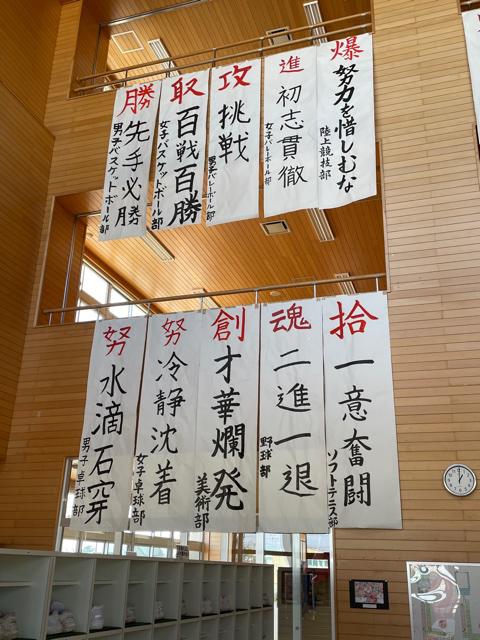 爆
努力を惜しむな
陸上競技部
進
初志貫徹
女子バレーボール部
攻
挑戦
男子バレーボール部
取
百戦百勝
女子バスケットボール部
勝
先手必勝
男子バスケットボール部
拾
一意奮闘
ソフトテニス部
魂
二進一退
野球部
創
才華爛発
美術部
努
冷静沈着
女子卓球部
努
水滴石穿
男子卓球部